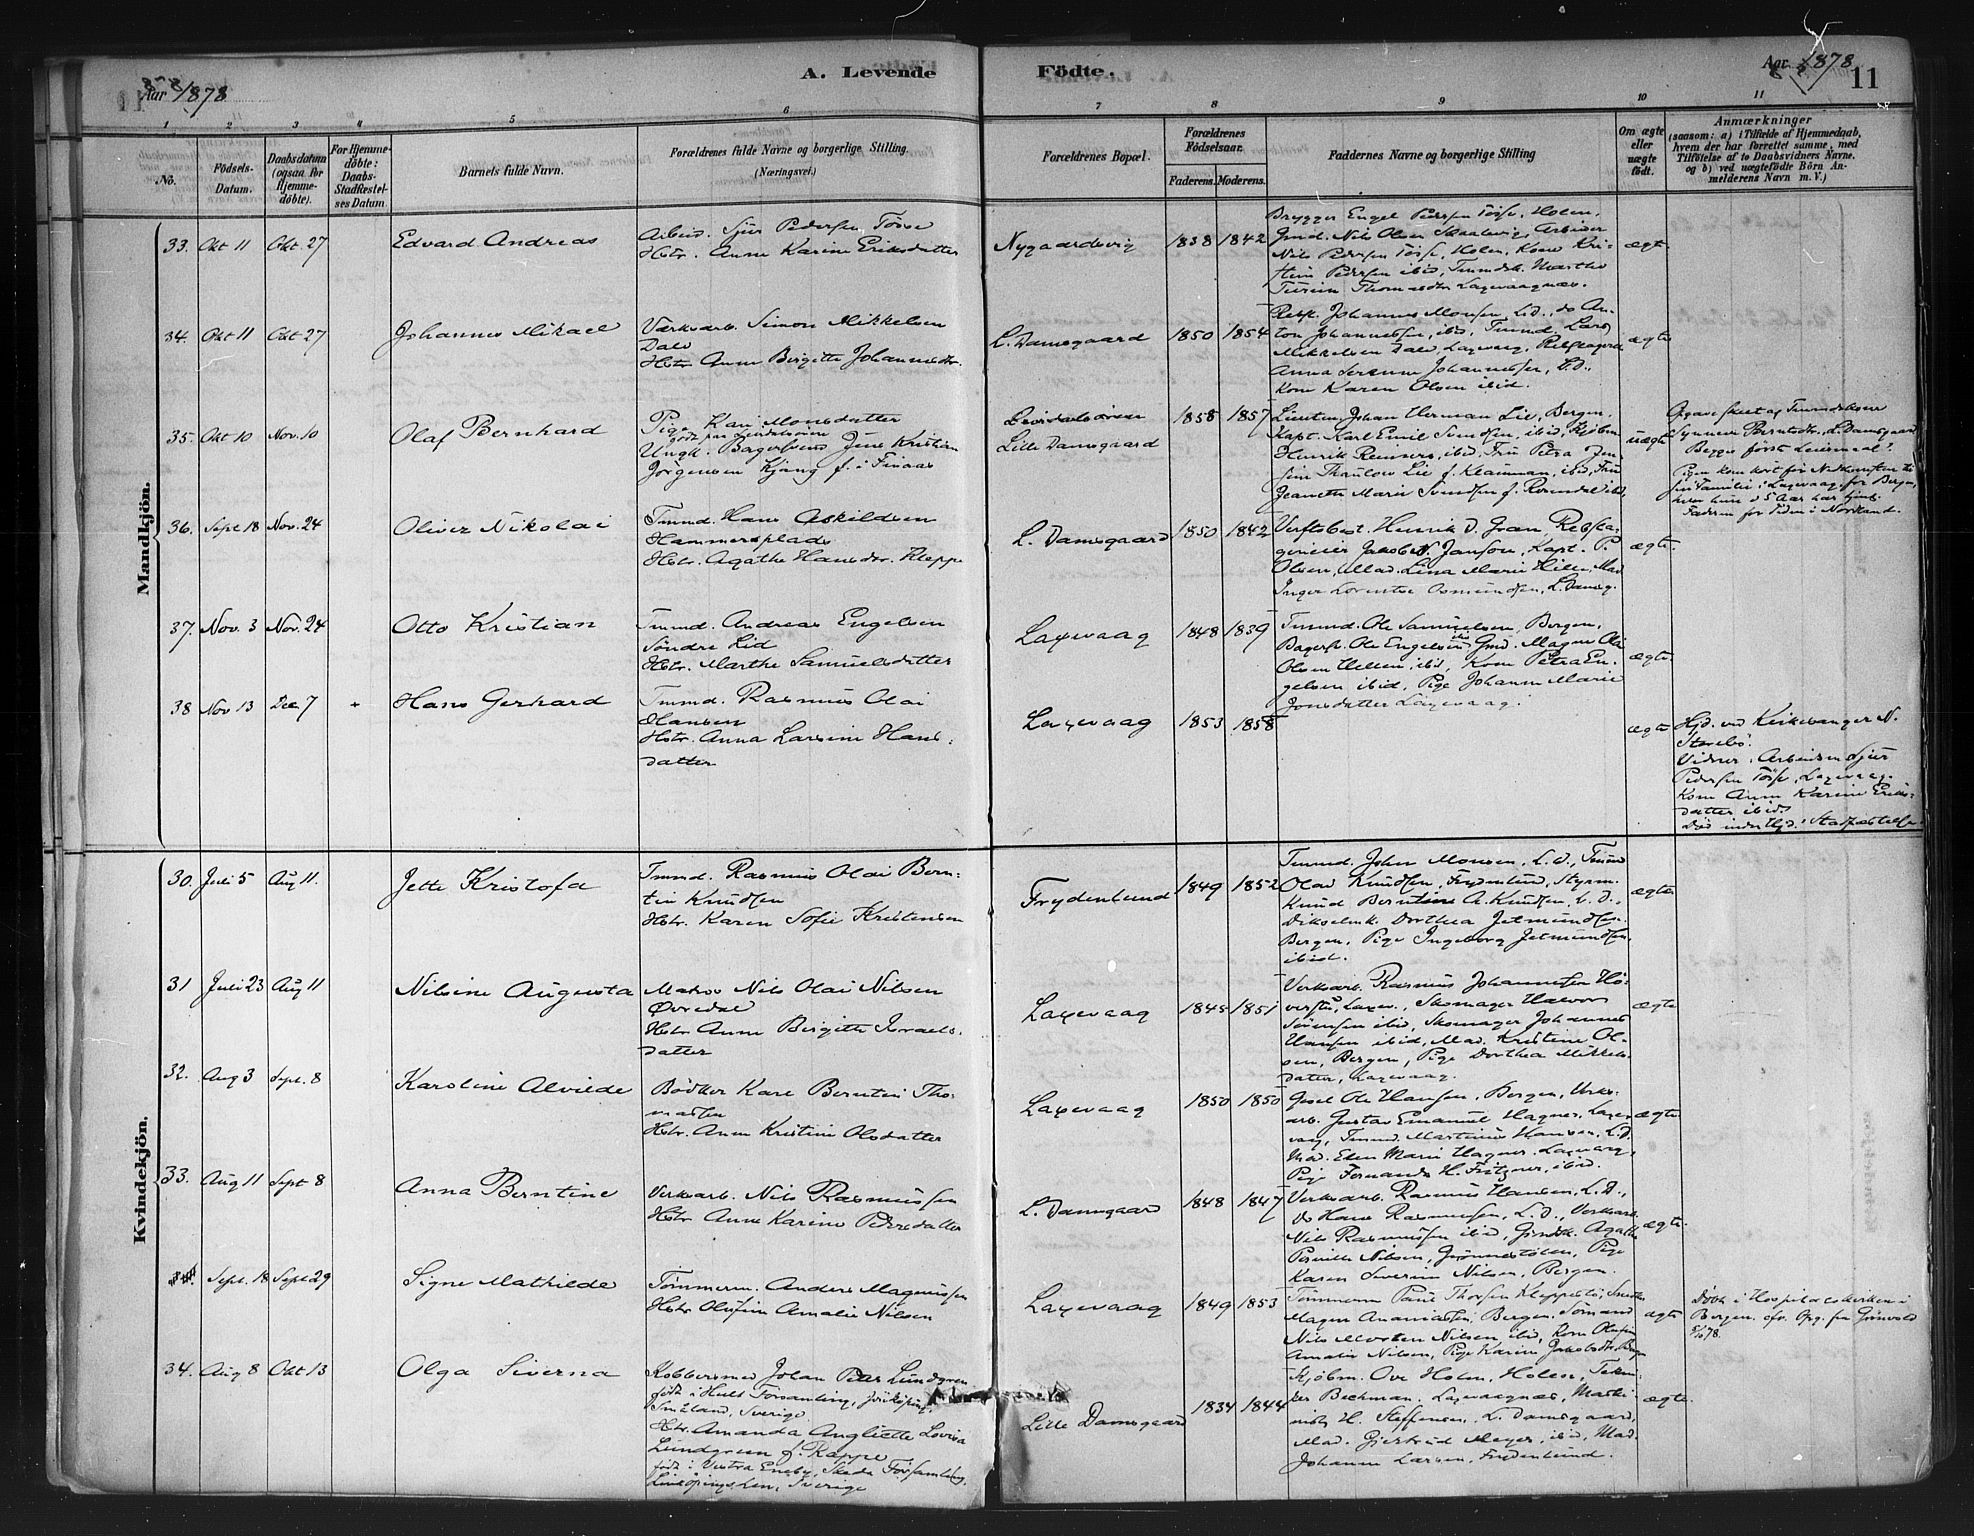 Aar 1878
A. Levende
Födte.
Aar 1878
11
1
2
3
4
5
6
7
8
9
10
11
No.
Fødsels-
Datum.
Daabsdatum
(ogsaa for
Hjemme-
döbte).
For Hjemme-
döbte:
Daabs-
Stadfæstel-
ses Datum.
Barnets fulde Navn.
Forældrenes fulde Navne og borgerlige Stilling.
(Næringsvei.)
Forældrenes Bopæl.
Forældrenes
Födselsaar.
Faderens.
Moderens.
Faddernes Navne og borgerlige Stilling
Om ægte
eller
uægte
födt.
Anmærkninger
(saasom: a) i Tilfælde af Hjemmedaab,
hvem der har forrettet samme, med
Tilföielse af to Daabsvidners Navne.
og b) ved uægtefödte Börn An-
melderens Navn m. V.)
Mandkjön.
33. Okt 11 Okt. 27 Edvard Andreas
Arbeid. Sjur Pedersen Tösse
Hstr. Anne Karine Eriksdatter
Nygaardsvig 1838 1842
Brygger Engel Pedersen Tösse, Holen,
Gmd. Nils Olsen Skaalevig, Arbeider
Nils Pedersen Tösse, Holen, Kone Kri-
stine Pedersen ibid, Tmmdsk. Marthe
Thomasdtr Laxevaagnæs.
ægt
34. Okt 11 Okt 27 Johannes Mikael
Værksarb. Simon Mikkelsen
Dale
Hstr Anne Birgitte Johannesdtr.
L. Damsgaard 1850 1854
Rebsl. Johannes Monsen L.D., do An-
ton Johannessen, ibid, Tmmd. Lars
Mikkelsen Dale, Laxevaag,
Anna Serine Johannessen, L.D.,
Kone Karen Olsen ibid.
ægte
35. Okt 10 Nov. 10 Olaf Bernhard
Pige Kari Monsdatter
Ungk. Bagersvend Jens Kristian
Jörgensen Kjang f. i
Lille Damsgaard
1858 1857
Johan Herman Lie, Bergen,
Kapt. Karl Emil Svendsen, ibid, Kjöbm.
Henrik Reimers, ibid, Fru Petra
Thaulow Lie f. ibid, Fru
Jeanette Marie Svendsen f. Rosendal ibid,
uægte
Opgave skeet af Tmmdskone
Synneve Berntsdtr, L. Damsgaard
Begges förste Leiermaal?
Pigen kom kort för Nedkomsten til
sin Familie i Laxevaag fra Bergen,
hvor hun i 5 Aar har tjent.
Faderen for Tiden i Nordland.
36. Sept 18 Nov. 24 Oliver Nikolai
Tmmd. Hans Askildsen
Hammersplads
Hstr. Agathe Hansdtr. Kleppe
L. Damsgaard 1850 1842
Verftsbest. Henrik D. Gran
Janson, Kapt. P.
Olsen, Mad. Lina Marie Hille, Mad
Inger Lorentse Osmundsen, L. Damsg.
ægte.
37. Nov. 3 Nov. 24 Otto Kristian
Tmmd. Andreas Engelsen
Söndre Lid
Hstr. Marthe Samuelsdatter
Laxevaag 1848 1839
Tmmd. Ole Samuelsen, Bergen,
Bagersv. Ole Engelsen ibid Gmd. Magne Ole
Olsen ibid, Kone Petra En-
gelsen ibid, Pige Johanne Marie
Jonsdatter Laxevaag.
ægte.
38 Nov 13 Dec 7 + Hans Gerhard
Tmmd. Rasmus Olai
Hansen
Hstr. Anna Larsine Hans-
datter
Laxevaag 1853 1858
ægte
Hjd. ved Kirkesanger N.
Storebö.
Vidner. Arbeidsm Sjur
Pedersen Tösse, Laxevaag.
Kone Anne Karine Eriks-
datter ibid.
Död inden Stadfæstelse.
Kvindekjön.
30. Juli 5 Aug 11. Jette Kristofa
Tmmd. Rasmus Olai Bern-
tin Knudsen
Hstr. Karen Sofie Kristensen
Frydenlund 1849 1852
Tmmd. John Monsen, L.D., Tmmd
Olai Knudsen, Frydenlund, Styrm.
Knud Berntine A. Knudsen, L.D.,
Dorthea Jetmundsen
Bergen, Pige Ingeborg Jetmundsen,
ibid.
ægte
31 Juli 23 Aug 11 Nilsine Augusta
Matros Nils Olai Nilsen
Övredal
Hstr Anne Birgitte Israels-
datter
Laxevaag 1848 1851
Verksarb. Rasmus Johannesen Hö-
Laxev., Skomager Halvor
Sörensen ibid, Skomager Johannes
Hansen ibid, Mad. Kristine Ol-
sen, Bergen, Pige Dorthea Mikkels-
datter, Laxevaag.
ægte
32. Aug 3 Sept. 8 Karoline Alvilde
Bödker Karl Berntin Tho-
massen
Hstr. Anne Kristine Olsdatter
Laxevaag 1850 1850
Ole Hansen, Bergen, Verks-
arb. Gustav Emanuel Hagner, Laxe-
vaag, Tmmd. Martinus Hansen, L.D.
Mad. Elen Marie Hagner, Laxevaag,
Pige Fernanda H. Fritzner, ibid.
ægte
33. Aug 11 Sept 8 Anna Berntine
Verksarb. Nils Rasmussen
Hstr Anne Karine Pedersdatter
L. Damsgaard 1848 1847
Verksarb. Rasmus Hansen, L.D.,
Do Hans Rasmussen, L.D., Verksarb.
Nils Rasmussen ibid, Agathe
Pernille Nilsen, Grönnestölen, Pige
Karen Severine Nilsen, Bergen.
ægte.
Sept. 18 Sept 29 Signe Mathilde
Tömmerm. Anders Magnussen
Hstr Olufine Amalie Nilsen
Laxevaag 1849 1853
Tömmerm Paul Thorsen Kleppestö,
Magne Ananiassen, Bergen. Sömand
Nils Morten Nilsen, ibid, Kone Olufine
Amalie Nilsen, Pige Karine Bergen
ægte
Döbt i Hospitalskirken i
Bergen. efr. Opg. fra Grönvold
78.
34. Aug 8 Okt 13 Olga Siverna
Kobbersmed Johan Peter Lundgren
född i Församling, Jönköping,
Småland, Sverige.
Hstr. Amanda Angliette Lovisa
Lundgren f. Rappe
född i Vestra Eneby, Skeda Församling,
Linköpings Len, Sverige
Lille Damsgaard 1834 1844
Kjöbm. Ove Holm, Holen, Tekni-
ker Beckman, Laxevaagnæs, Maski-
nist H. Steffensen, L. Damsgaard,
Mad. Gjertrud Meyer, ibid, Mad.
Johanne Larsen, Frydenlund.
ægte.